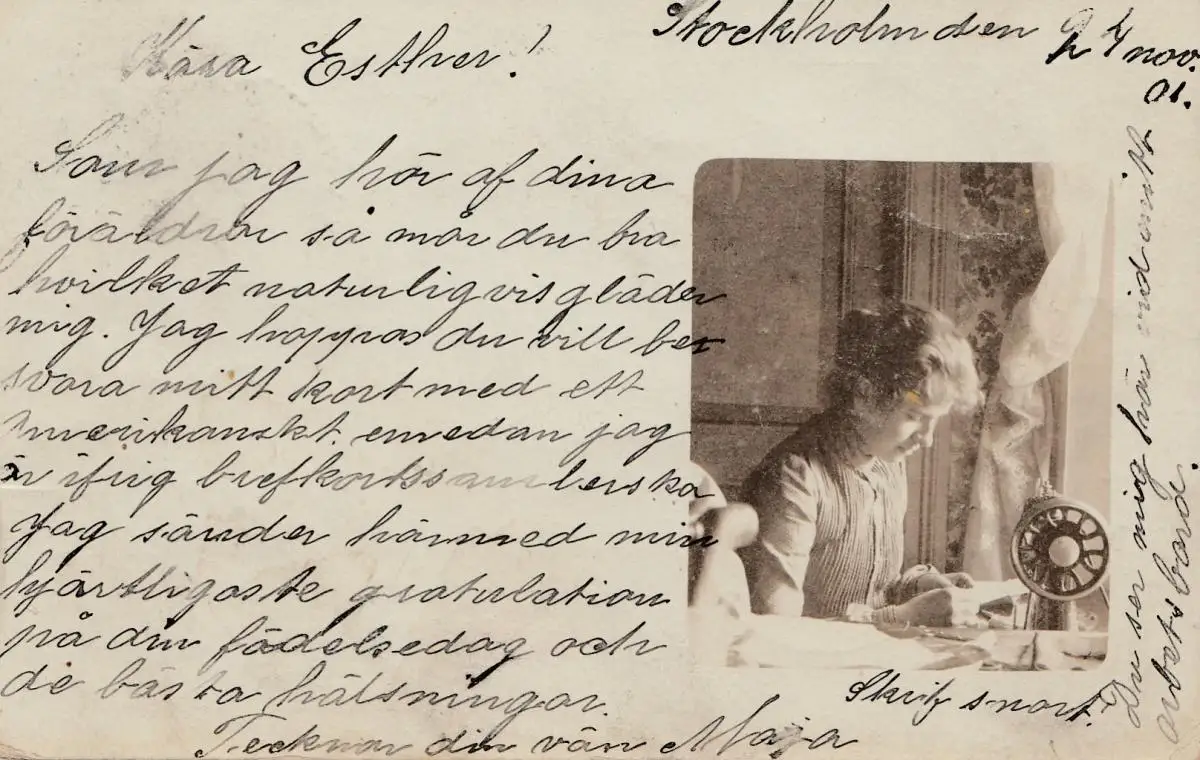 Stockholm den 24 nov.
01.
Kära Esther!
Som jag hör af dina
föräldrar så mår du bra
hvilket naturligvis gläder
mig. Jag hoppas du vill be-
svara mitt kort med ett
Amerikanskt, emedan jag
är ifrig brefkortssamlerska
Jag sänder härmed min
hjärtligaste gratulation
på din födelsedag och
de bästa hälsningar.
Tecknar din vän Maja
Skrif snart!
Du ser mig här vid mitt
arbetsbord.